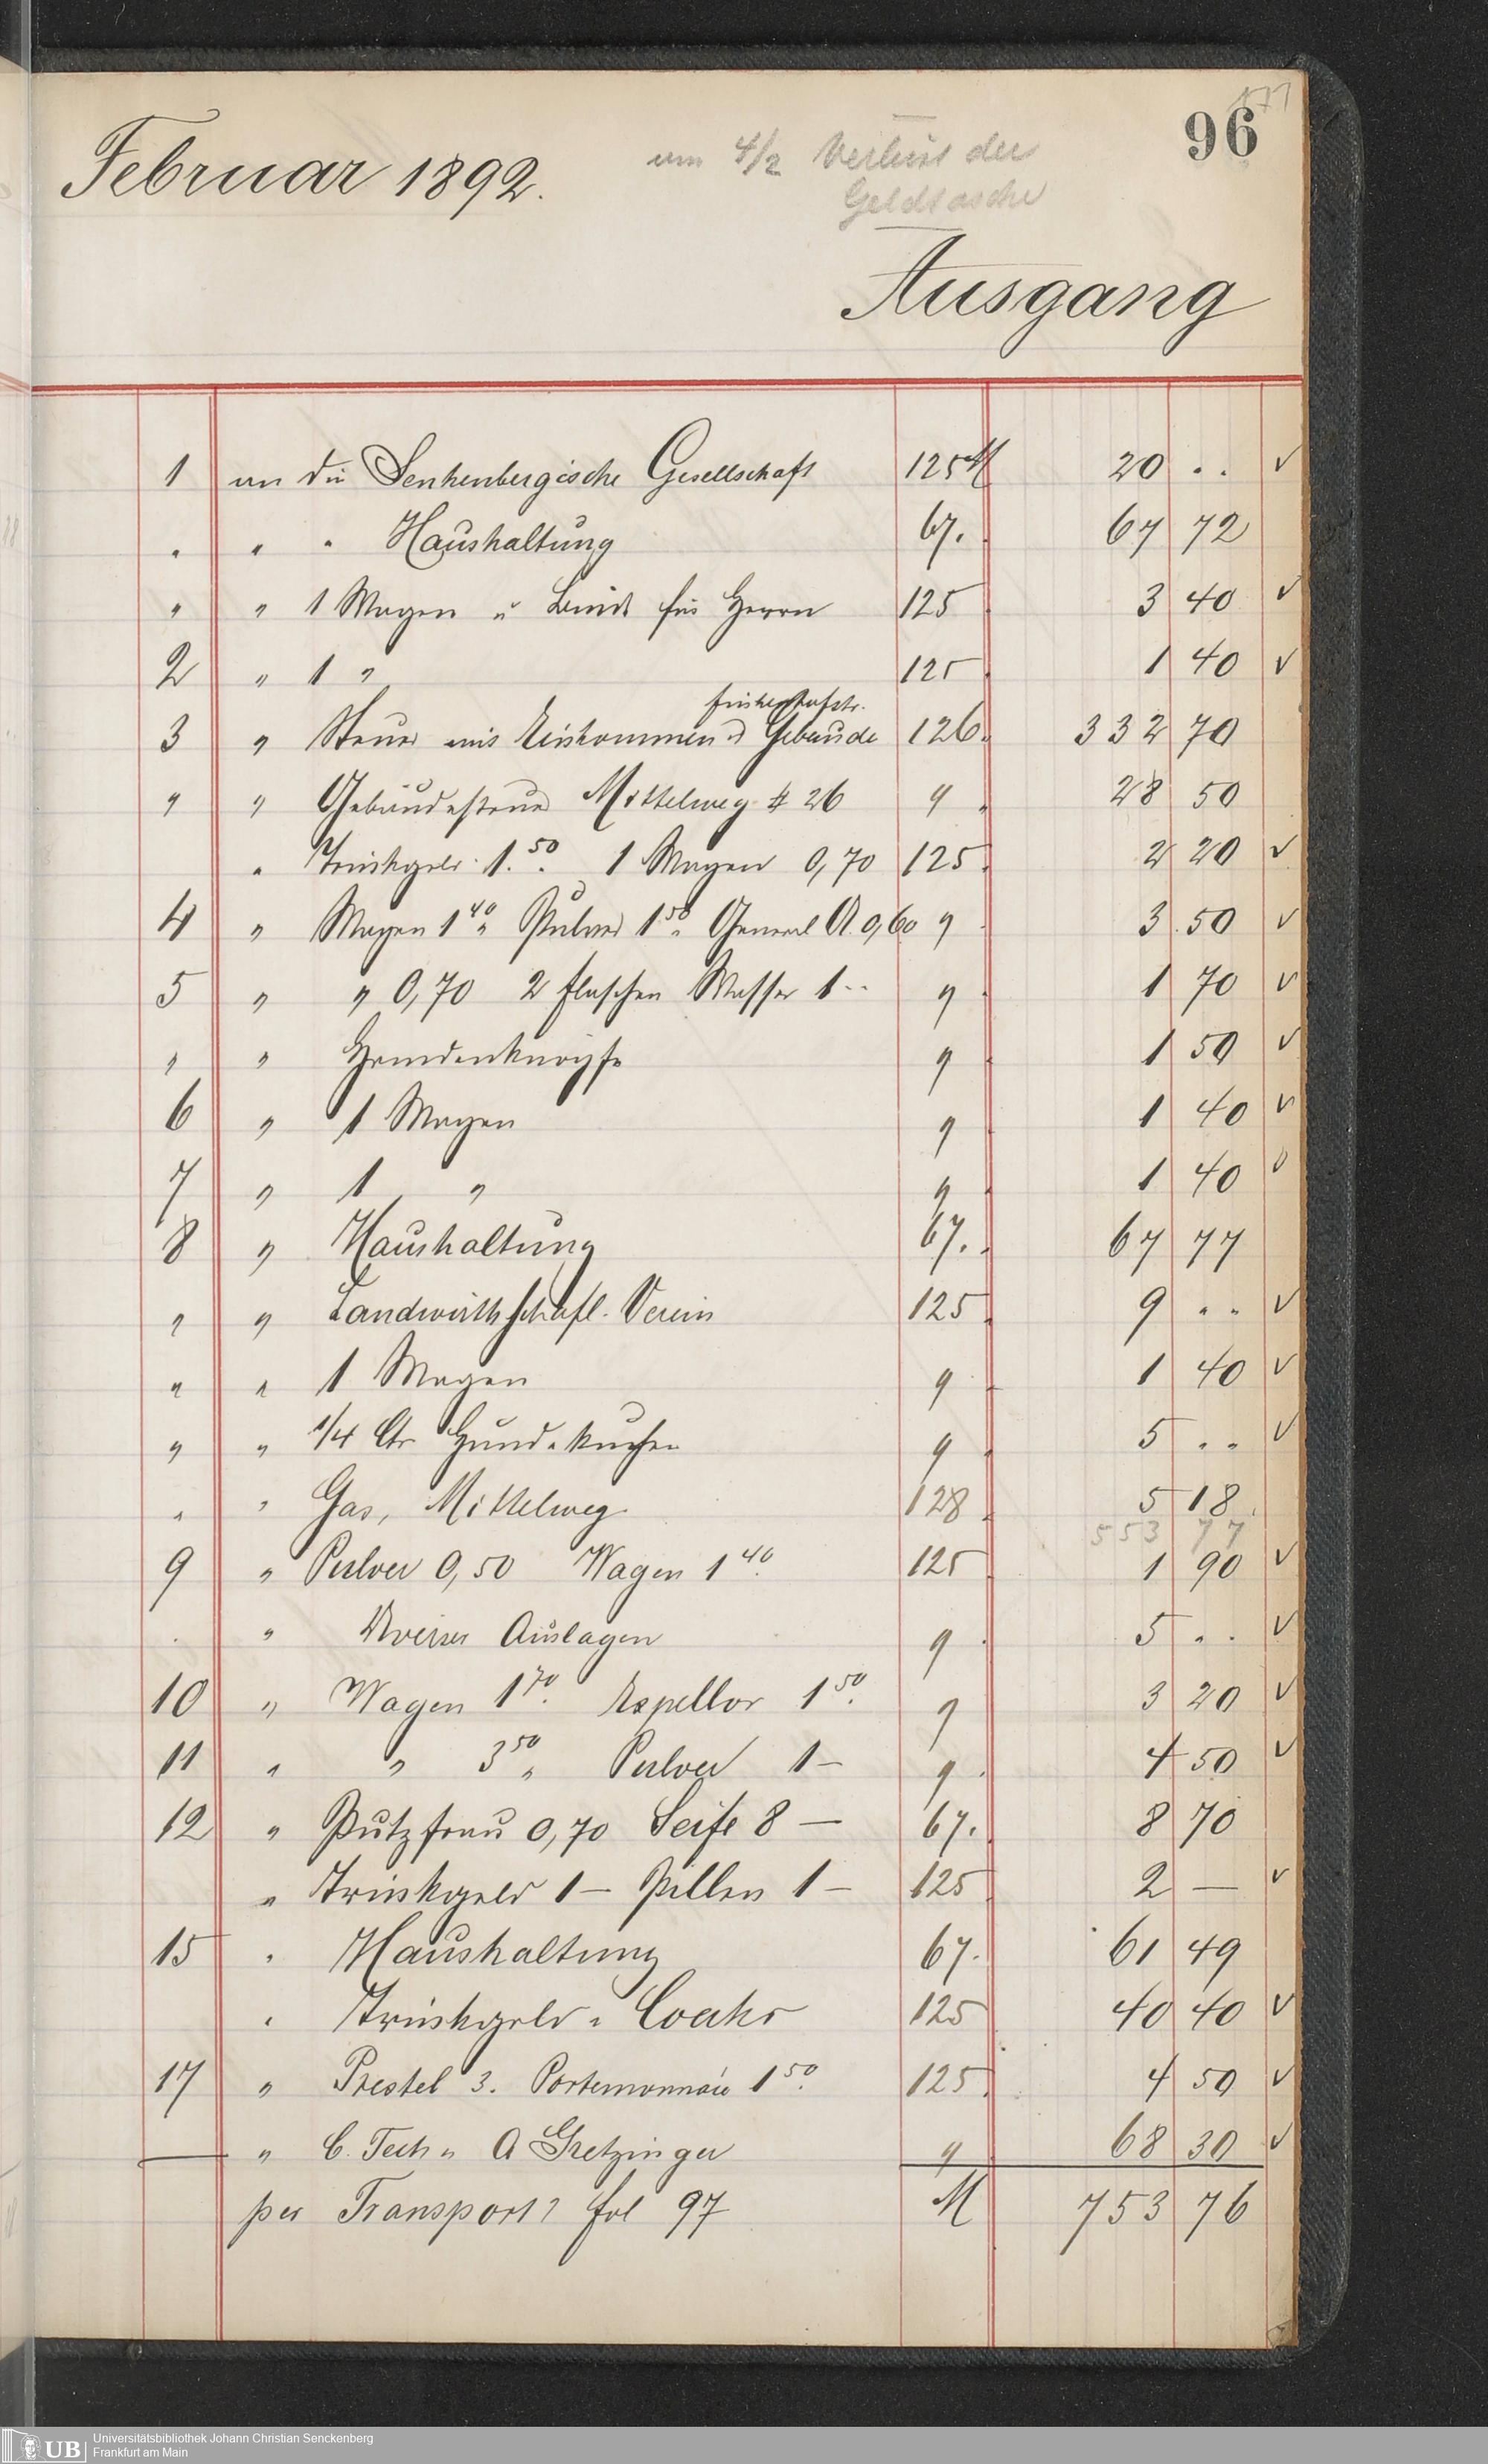 177
96
Februar 1892.
am 4/2 Verlust der
Geldtasche
Ausgang
1 an die Senkenbergische Gesellschaft 125 M 20 . . ✓
" " " Haushaltung 67. 67 72
" " 1 Wagen u für Herrn 125 3 40 ✓
2 " 1 " 125 1 40 ✓
3 " Steuer aus Einkommen u Gebäude 126. 332 70
" " Gebäudesteuer Mittelweg # 26 " 28 50
" Trinkgeld 1.50 1 Wagen 0,70 125. 2 20 ✓
4 " Wagen 1 40 " Pulver 1 50 " General A. 0,60 " 3 50 ✓
5 " " 0,70 2 Flaschen Wasser 1 -- " 1 70 ✓
" " Hemdenknöpfe " 1 50 ✓
6 " 1 Wagen " 1 40 ✓
7 " 1 " " 1 40 ✓
8 " Haushaltung 67. 67 77
" " Landwirthschaftl. Verein 125 9 . . ✓
" " 1 Wagen " 1 40 ✓
" " 1/4 Ctr Hundekuchen " 5 . . ✓
" " Gas, Mittelweg 128 5 18
553 77
9 " Pulver 0,50 Wagen 1 40 125 1 90 ✓
" Diverse Auslagen " 5 . . ✓
10 " Wagen 1 70 Expellor 1 50 " 3 20 ✓
11 " " 3 50 " Pulver 1 - " 4 50 ✓
12 " Putzfrau 0,70 Seife 8 — 67. 8 70
" Trinkgeld 1 - Pillen 1 - 125 2 — ✓
15 " Haushaltung 67. 61 49
" Trinkgeld " Coaks 125 40 40 ✓
17 " Prestel 3. Portemonnaie 1 50 125 4 50 ✓
" C. Tech " A Gretzinger " 68 30 ✓
per Transport fol 97 M 753 76
UB
Universitätsbibliothek Johann Christian Senckenberg
Frankfurt am Main